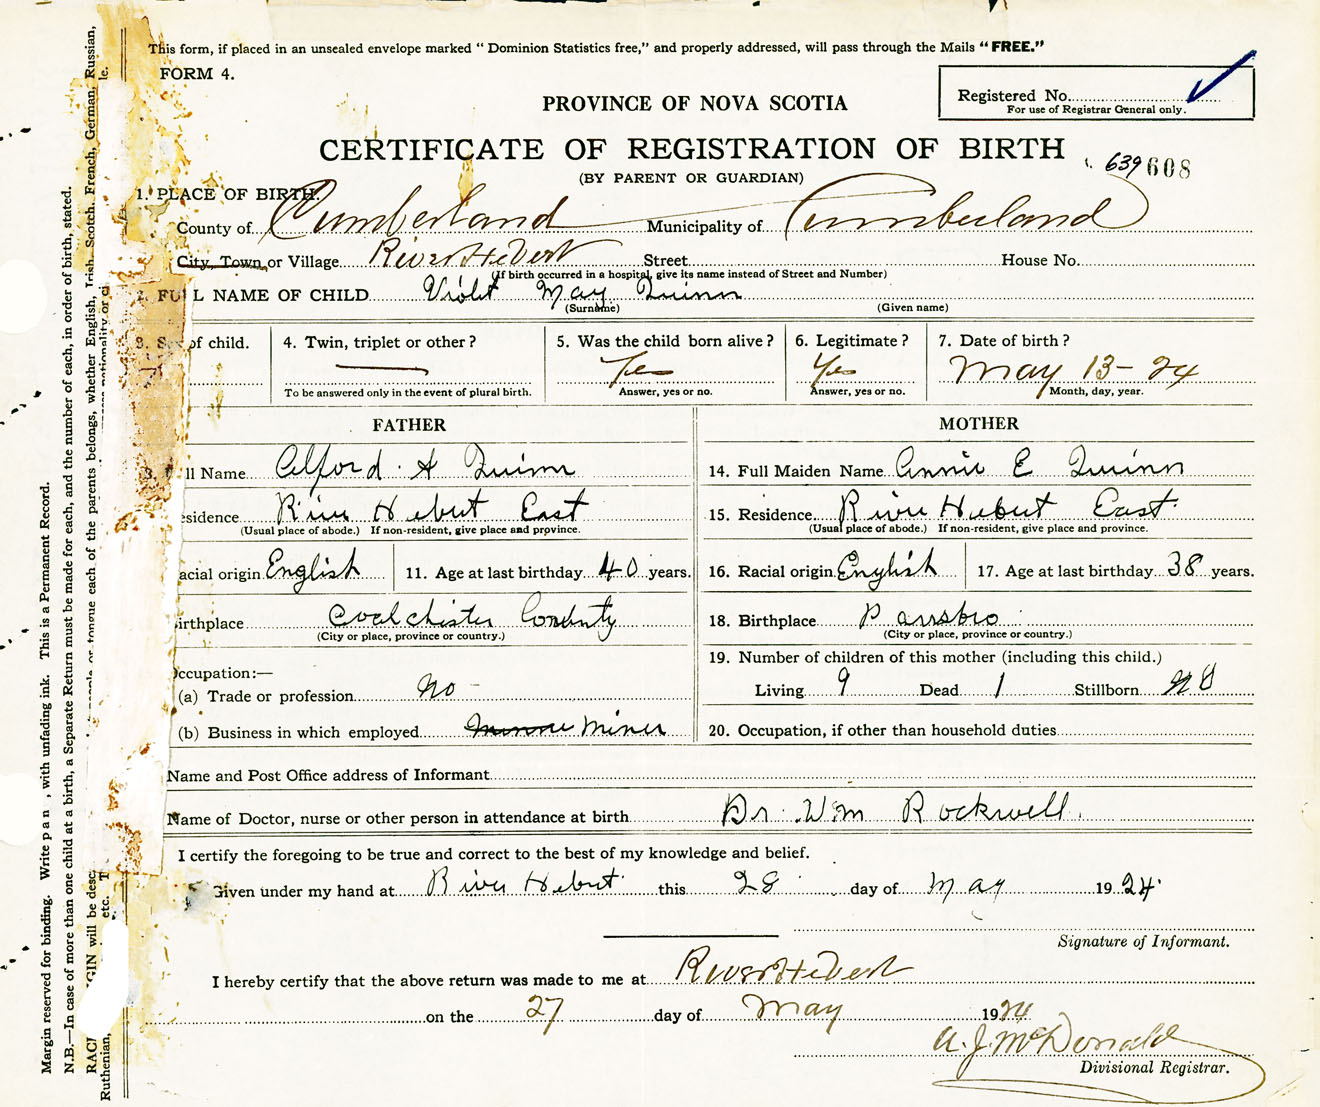 This form, if placed in an unsealed envelope marked " Dominion Statistics free," and properly addressed, will pass through the Mails "FREE."
FORM 4.
Registered No.
For use of Registrar General only.
PROVINCE OF NOVA SCOTIA
CERTIFICATE OF REGISTRATION OF BIRTH
639 608
(BY PARENT OR GUARDIAN)
1. PLACE OF BIRTH.
County of Cumberland Municipality of Cumberland
City, Town or Village River Hebert Street House No.
(If birth occurred in a hospital, give its name instead of Street and Number)
2. FULL NAME OF CHILD Violet May Quinn
(Surname) (Given name)
3. S of child. 4. Twin, triplet or other? 5. Was the child born alive? 6. Legitimate? 7. Date of birth?
Yes Yes May 13-24
To be answered only in the event of plural birth. Answer, yes or no. Answer, yes or no. Month, day, year.
FATHER MOTHER
ll Name Alford A Quinn 14. Full Maiden Name Annie E Quinn
esidence River Hebert East 15. Residence River Hebert East
(Usual place of abode.) If non-resident, give place and province. (Usual place of abode.) If non-resident, give place and province.
acial origin English 11. Age at last birthday 40 years. 16. Racial origin English 17. Age at last birthday 38 years.
irthplace Coalchister Conunty 18. Birthplace Parrsbro
(City or place, province or country.) (City or place, province or country.)
19. Number of children of this mother (including this child.)
ccupation:—
(a) Trade or profession No - Living 9 Dead 1 Stillborn No
(b) Business in which employed Miner 20. Occupation, if other than household duties
Name and Post Office address of Informant
Name of Doctor, nurse or other person in attendance at birth Dr. Wm Rockwell.
I certify the foregoing to be true and correct to the best of my knowledge and belief.
Given under my hand at River Hebert this 28 day of May 1924
Signature of Informant.
I hereby certify that the above return was made to me at River Hebert
on the 27 day of May 1924
A. J. McDonald
Divisional Registrar.
Margin reserved for binding. Write p a n , with unfading ink. This is a Permanent Record.
N.B.—In case of more than one child at a birth, a Separate Return must be made for each, and the number of each, in order of birth, stated.
RACI GIN will be desc people or tongue each of the parents belongs, whether English, Irish, Scotch, French, German, Russian,
Ruthenian, etc. T nationality or c le.